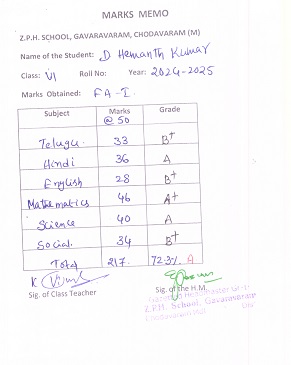 MARKS MEMO
Z.P.H. SCHOOL, GAVARAVARAM, CHODAVARAM (M)
Name of the Student: D Hemanth Kumar
Class: VI Roll No: Year: 2024-2025
Marks Obtained: FA-I
Subject Marks @ 50 Grade
Telugu 33 B+
Hindi 36 A
English 28 B+
Mathematics 46 A+
Science 40 A
Social 34 B+
Total 217 72.3% A
Sig. of Class Teacher Sig. of the H.M.
Z.P.H. School, Gavaravaram